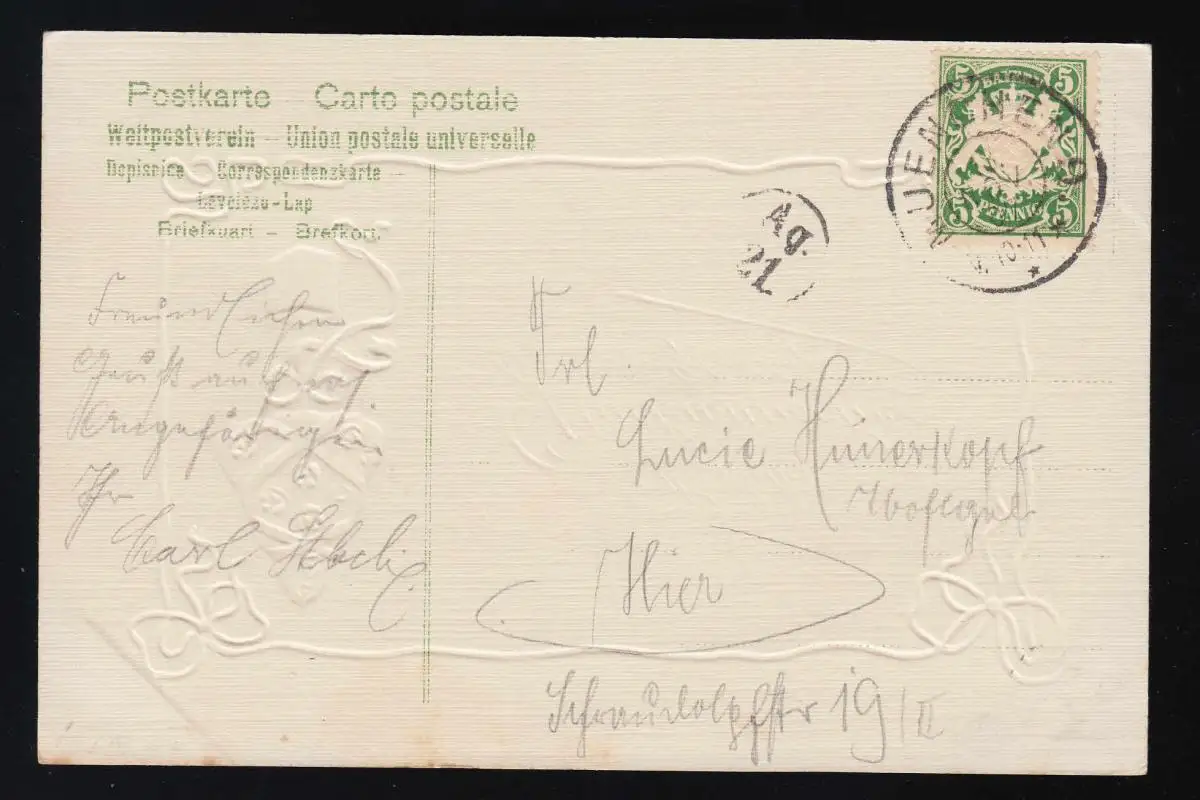 Postkarte Carte postale
Weltpostverein - Union postale universelle
Dopisnice - Correspondenzkarte -
Levelezo-Lap
Briefkaart - Brefkort.
5 5
BAYERN
5 PFENNIG 5
MUENCHEN
10-11
Ag.
21
Freundlichen
Gruß auch
Angehörigen
Ihr
Karl
Frl.
Lucie Hünerkopf
Wohlgeb
Hier
Schraudolphstr 19/II